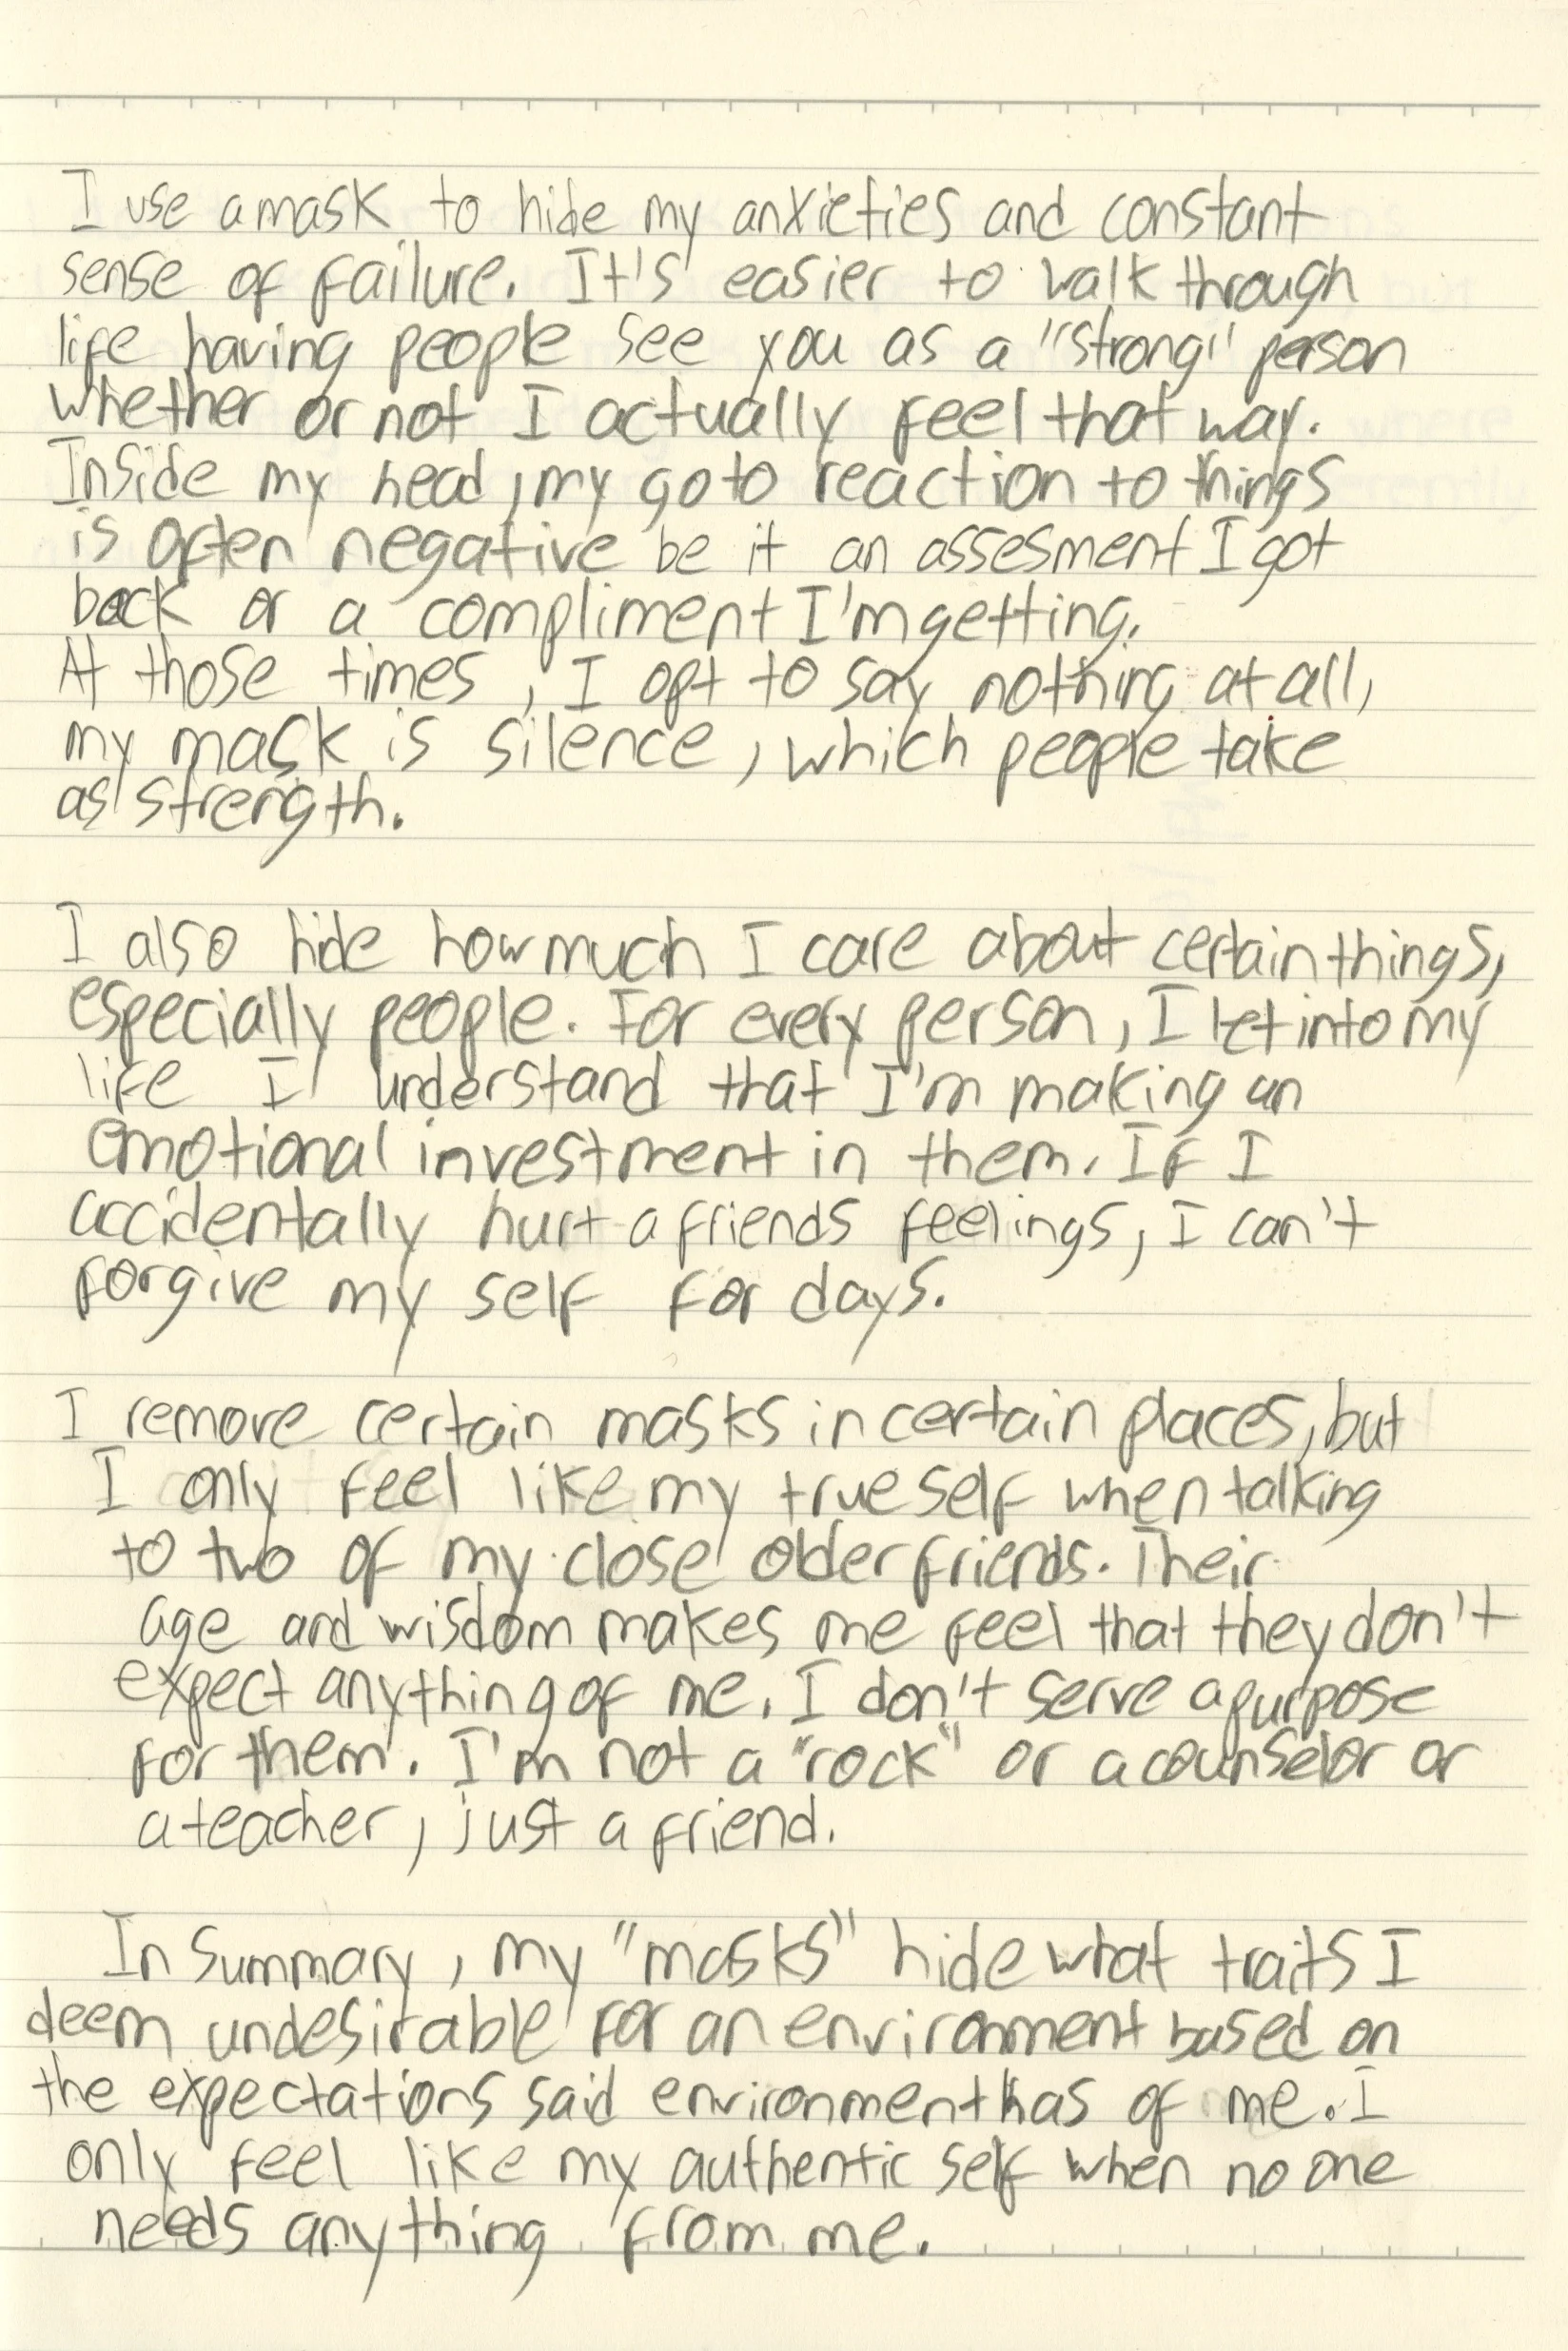 I use a mask to hide my anxieties and constant
sense of failure. It's easier to walk through
life having people see you as a "strong" person
whether or not I actually feel that way.
Inside my head, my go to reaction to things
is often negative be it an assesment I got
back or a compliment I'm getting.
At those times, I opt to say nothing at all,
my mask is silence, which people take
as strength.
I also hide how much I care about certain things,
especially people. For every person, I let into my
life I understand that I'm making an
emotional investment in them. If I
accidentally hurt a friends feelings, I can't
forgive my self for days.
I remove certain masks in certain places, but
I only feel like my true self when talking
to two of my close older friends. Their
age and wisdom makes me feel that they don't
expect anything of me. I don't serve a purpose
for them. I'm not a "rock" or a counselor or
a teacher, just a friend.
In Summary, my "masks" hide what traits I
deem undesirable for an environment based on
the expectations said environment has of me. I
only feel like my authentic self when no one
needs anything from me.